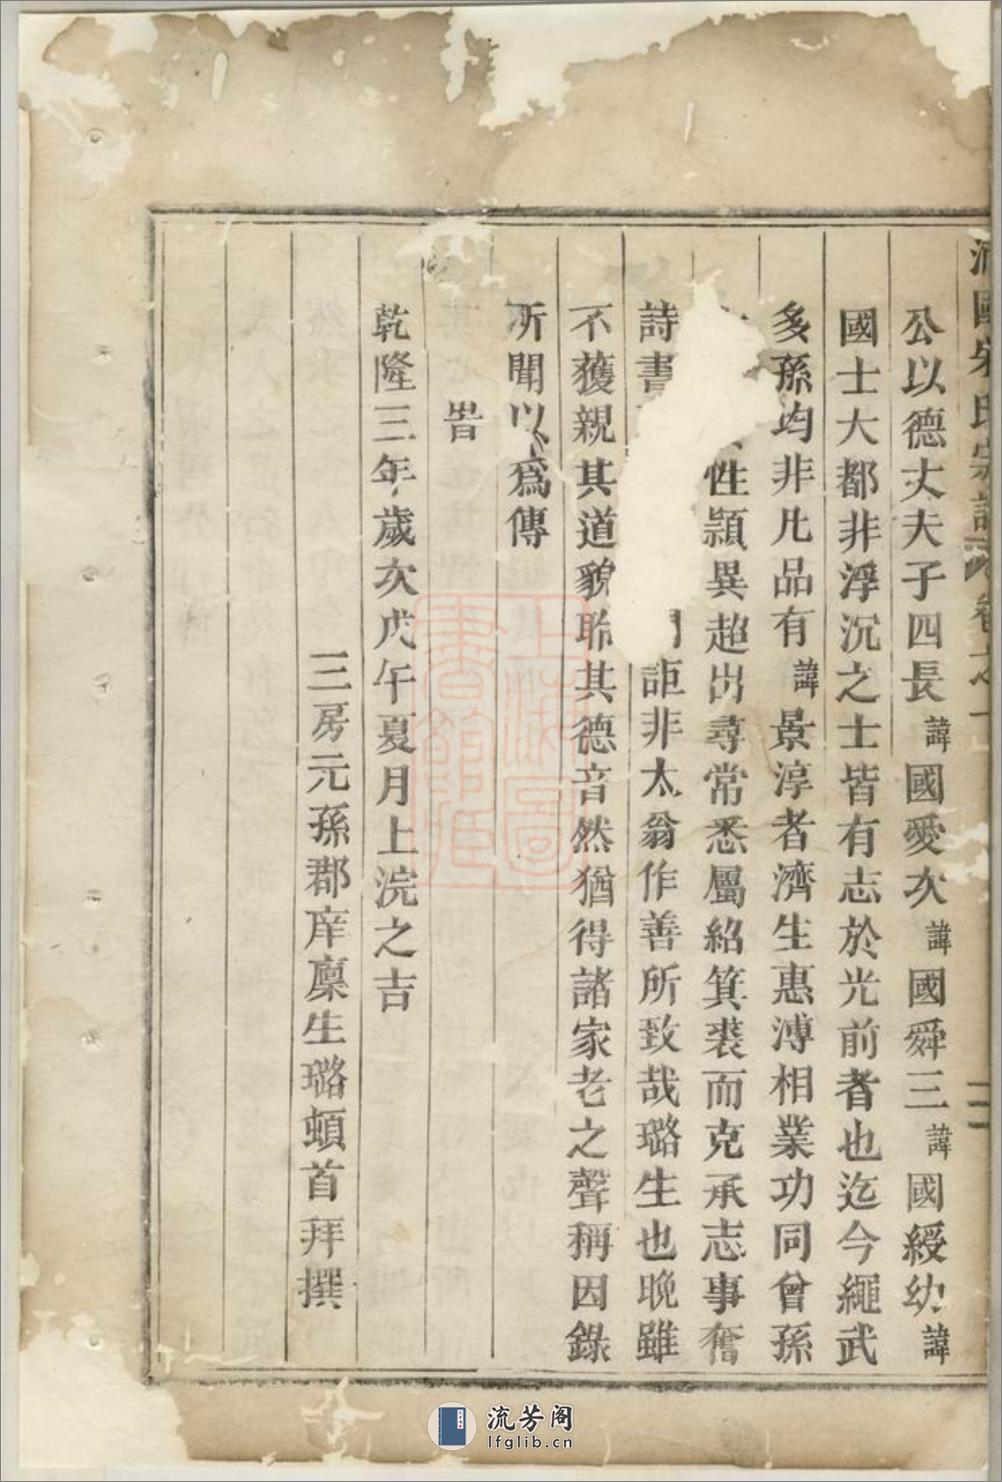 國宋氏宗譜 卷之十 二
公以德丈夫子四長諱國愛次諱國舜三諱國綬幼諱
國士大都非浮沉之士皆有志於光前者也迄今繩武
多孫均非凡品有諱景淳者濟生惠溥相業功同曾孫
性頴異超出尋常悉屬紹箕裘而克承志事奮
詩書詎非太翁作善所致哉璐生也晚雖
不獲親其道貌聆其德音然猶得諸家老之聲稱因錄
所聞以爲傳
旹
乾隆三年歲次戊午夏月上浣之吉
三房元孫郡庠廩生璐頓首拜撰
上海圖書館藏
流芳阁
lfglib.cn